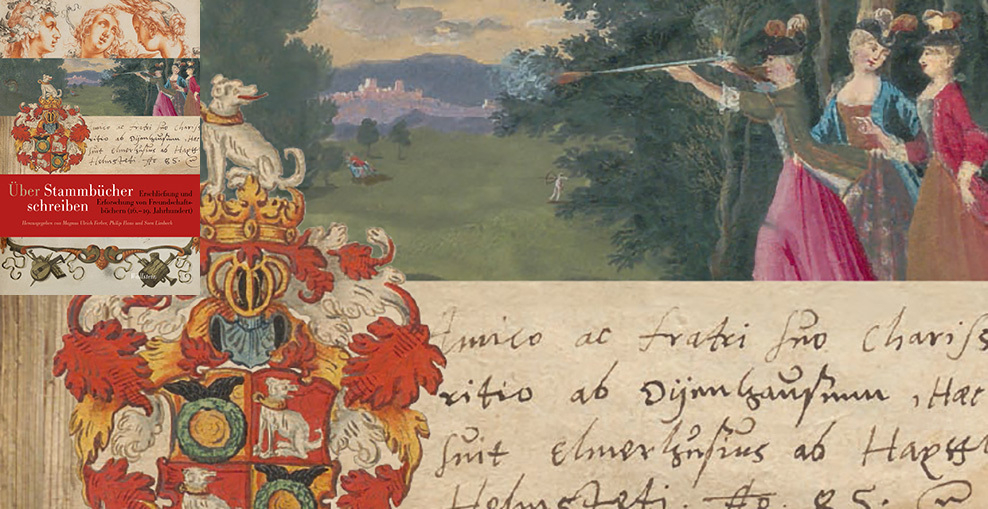 Über Stammbücher
schreiben
Erschließung und
Erforschung von Freundschafts-
büchern (16.–19. Jahrhundert)
Herausgegeben von Magnus Ulrich Ferber, Philip Haas und Sven Limbeck
Wallstein
Amico ac fratri suo Chariss
ritio ab Oÿenhaußenn, Hæc
suit Elmerhußius ab Haxtt
Helmsteti. Ao. 85.